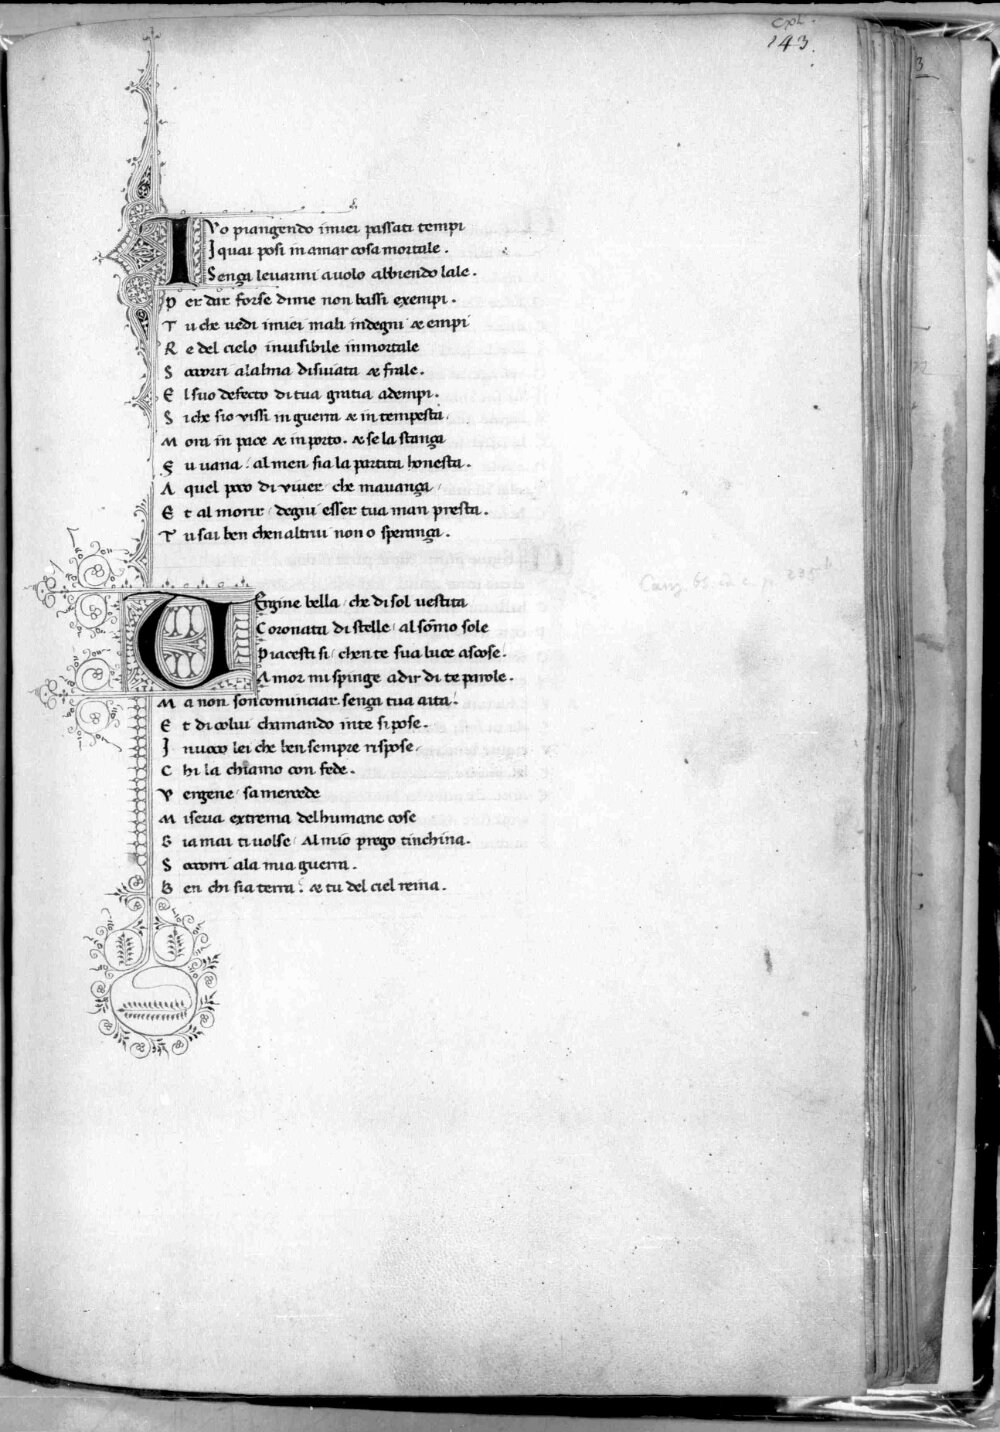 cxl.
143.
IVo piangendo imiei passati tempi
I quai posi in amar cosa mortale.
Senza levarmi a volo abbiendo lale.
P er dar forse dime non bassi exempi.
T u che vedi imiei mali indegni & empi
R e del cielo invisibile inmortale
S ocorri alalma disviata & frale.
E l suo defecto di tua gratia adempi.
S i che sio vissi in guerra & in tempesta
M ora in pace & in porto. & se la stanza
F u vana / al men sia la partita honesta.
A quel poco di viver / che mavanza /
E t al morir / degni esser tua man presta.
T u sai ben chen altrui non o speranza.
VErgine bella / che di sol vestita
Coronata di stelle / al sōmo sole
Piacesti si / chen te sua luce ascose.
Amor mi spinge a dir di te parole.
M a non so ncominciar senza tua aita.
E t di colui chamando inte si pose.
I nvoco lei che ben sempre rispose /
C hi la chiamo con fede.
V ergene / sa mercede
M iseria extrema delhumane cose
G ia mai ti volse / Al mio prego tinchina.
S ocorri ala mia guerra.
B en chi sia terra. & tu del ciel reina.